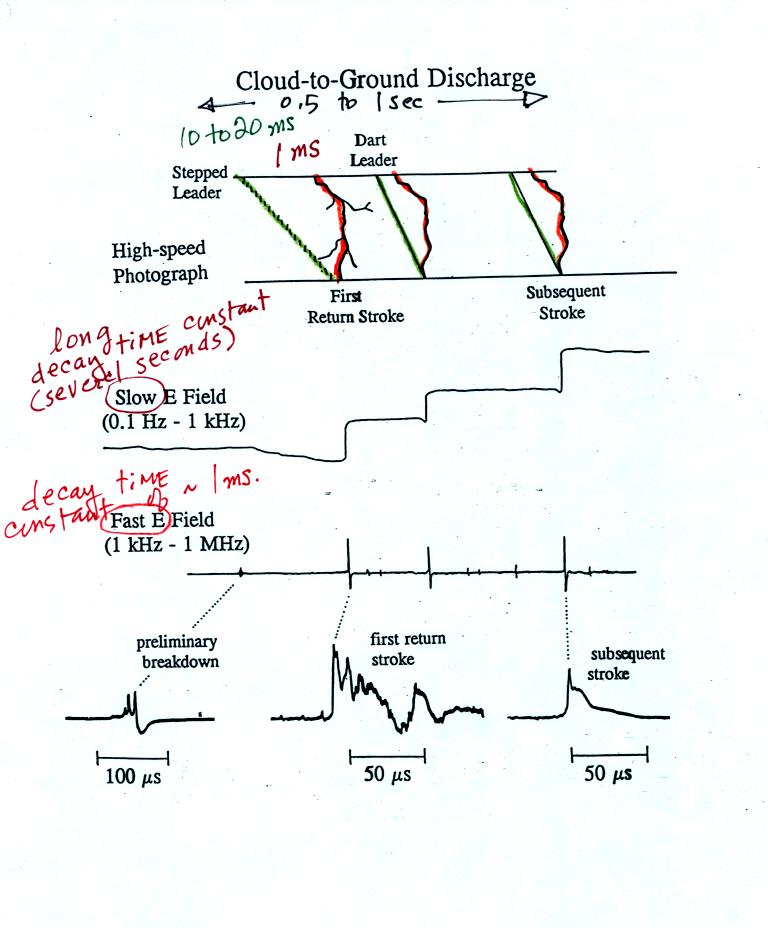 Cloud-to-Ground Discharge
0.5 to 1 sec
10 to 20 ms
1 ms
Dart
Leader
Stepped
Leader
High-speed
Photograph
First
Return Stroke
Subsequent
Stroke
long time constant
decay
(several seconds)
Slow E Field
(0.1 Hz - 1 kHz)
decay time
constant of ~ 1 ms.
Fast E Field
(1 kHz - 1 MHz)
preliminary
breakdown
first return
stroke
subsequent
stroke
100 μs
50 μs
50 μs